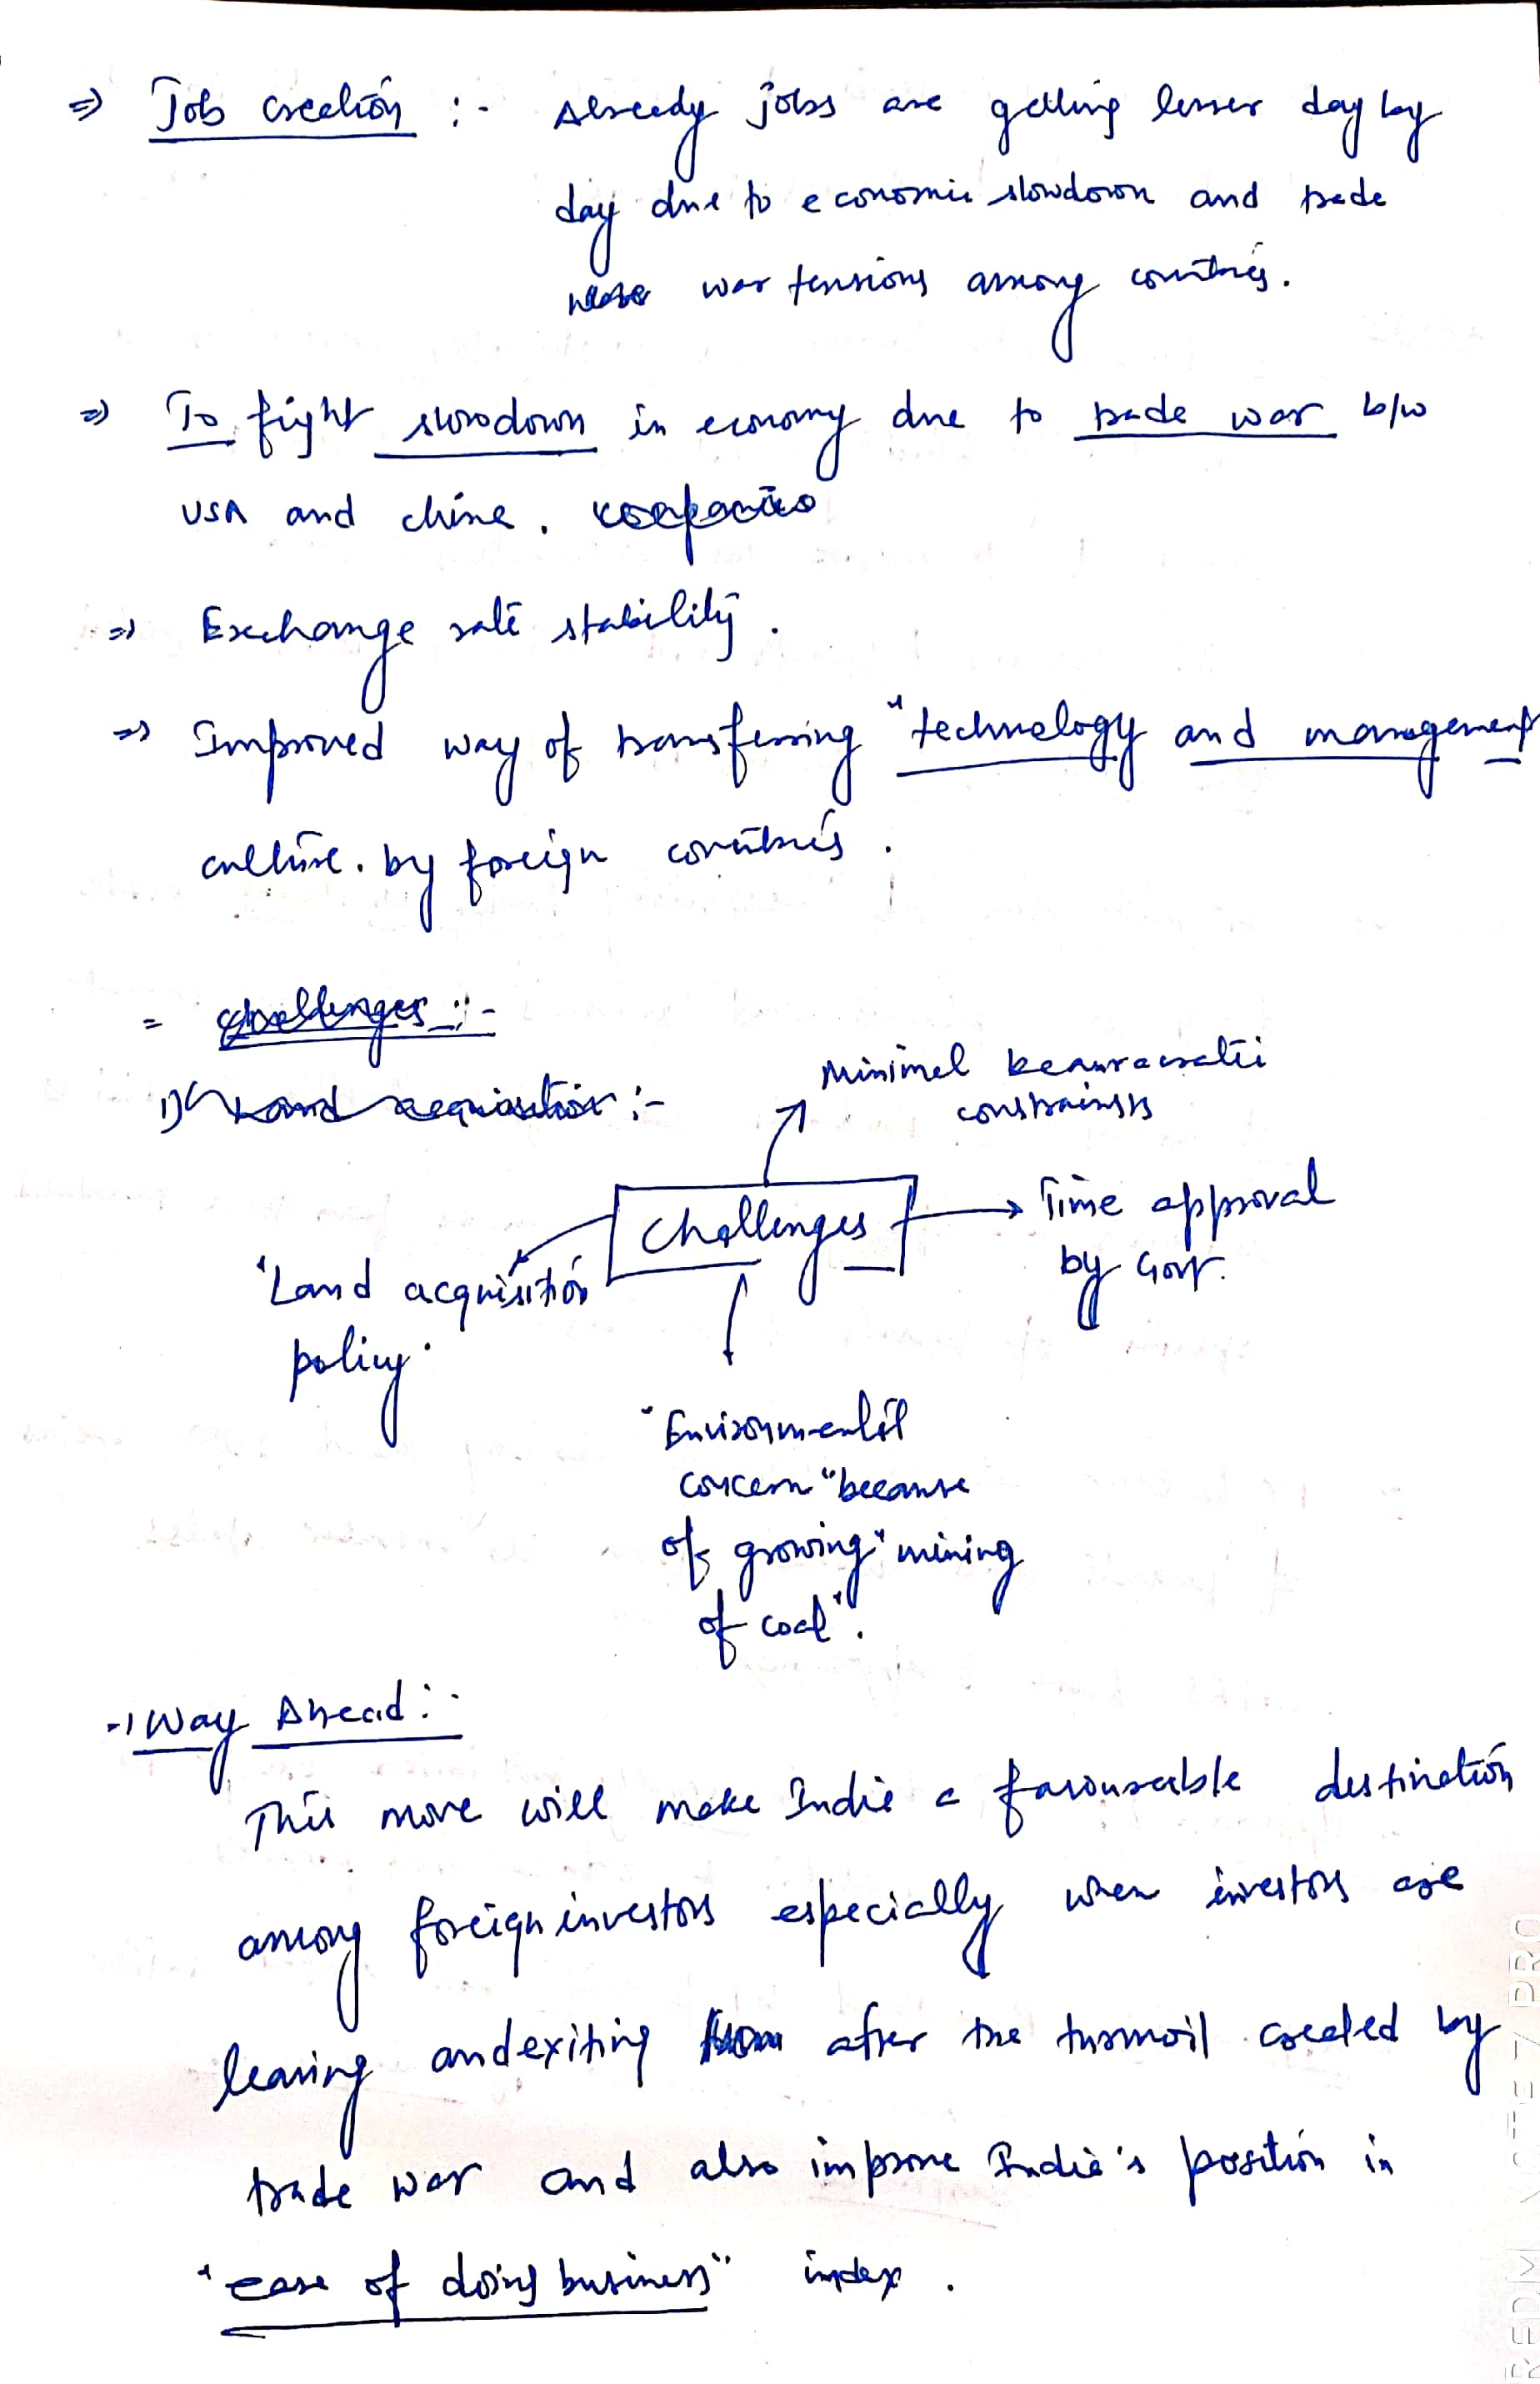 ⇒ Job creation :- Already jobs are getting lesser day by
day due to economic slowdown and trade
war tensions among countries.
⇒ To fight slowdown in economy due to trade war b/w
USA and China.
⇒ Exchange rate stability.
⇒ Improved way of transferring "technology and management
culture. by foreign countries.
= Challenges :-
1) Land acquisition :-
Minimal
constraints
Challenges
→ Time approval
by Govt.
"Land acquisition
policy"
"Environmental
concern "because
of growing "mining
of coal".
→ Way Ahead :-
This move will make India a favourable destination
among foreign investors especially when investors are
leaving and exiting after the turmoil created by
trade war and also improve India's position in
"ease of doing business" index.
REDMI NOTE 7 PRO